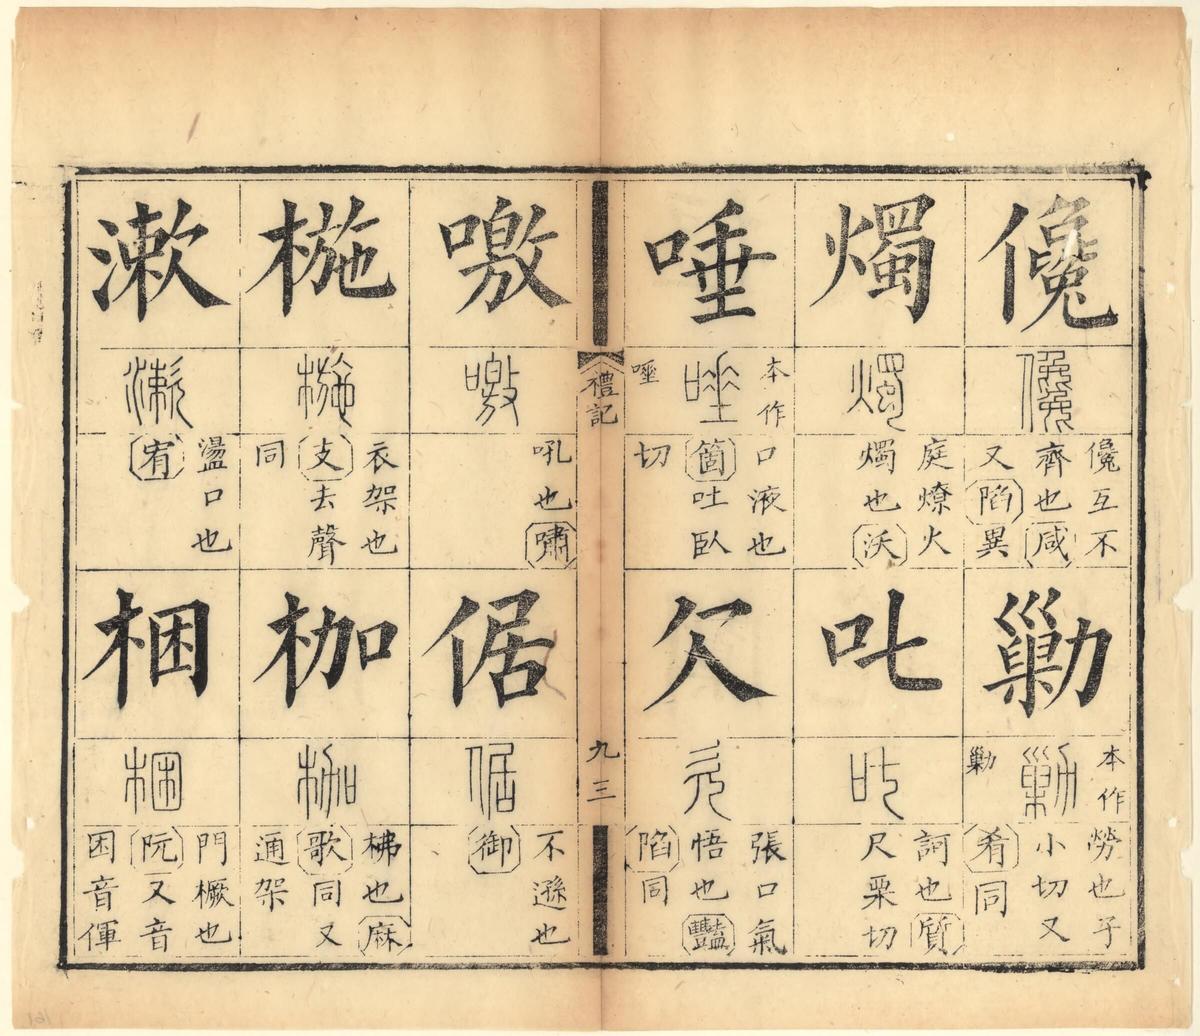 儳
儳
儳互不
齊也咸
又陷異
勦
本作
勦
勦
勞也子
小切又
肴同
燭
燭
庭燎火
燭也沃
叱
叱
訶也質
尺栗切
唾
本作
唾
口液也
箇吐臥
切
欠
欠
張口氣
悟也豔
陷同
禮記
九三
噭
噭
吼也嘯
倨
倨
不遜也
御
椸
椸
衣架也
支去聲
同
枷
枷
柫也麻
歌同又
通架
漱
漱
盪口也
宥
梱
梱
門橛也
阮又音
困音